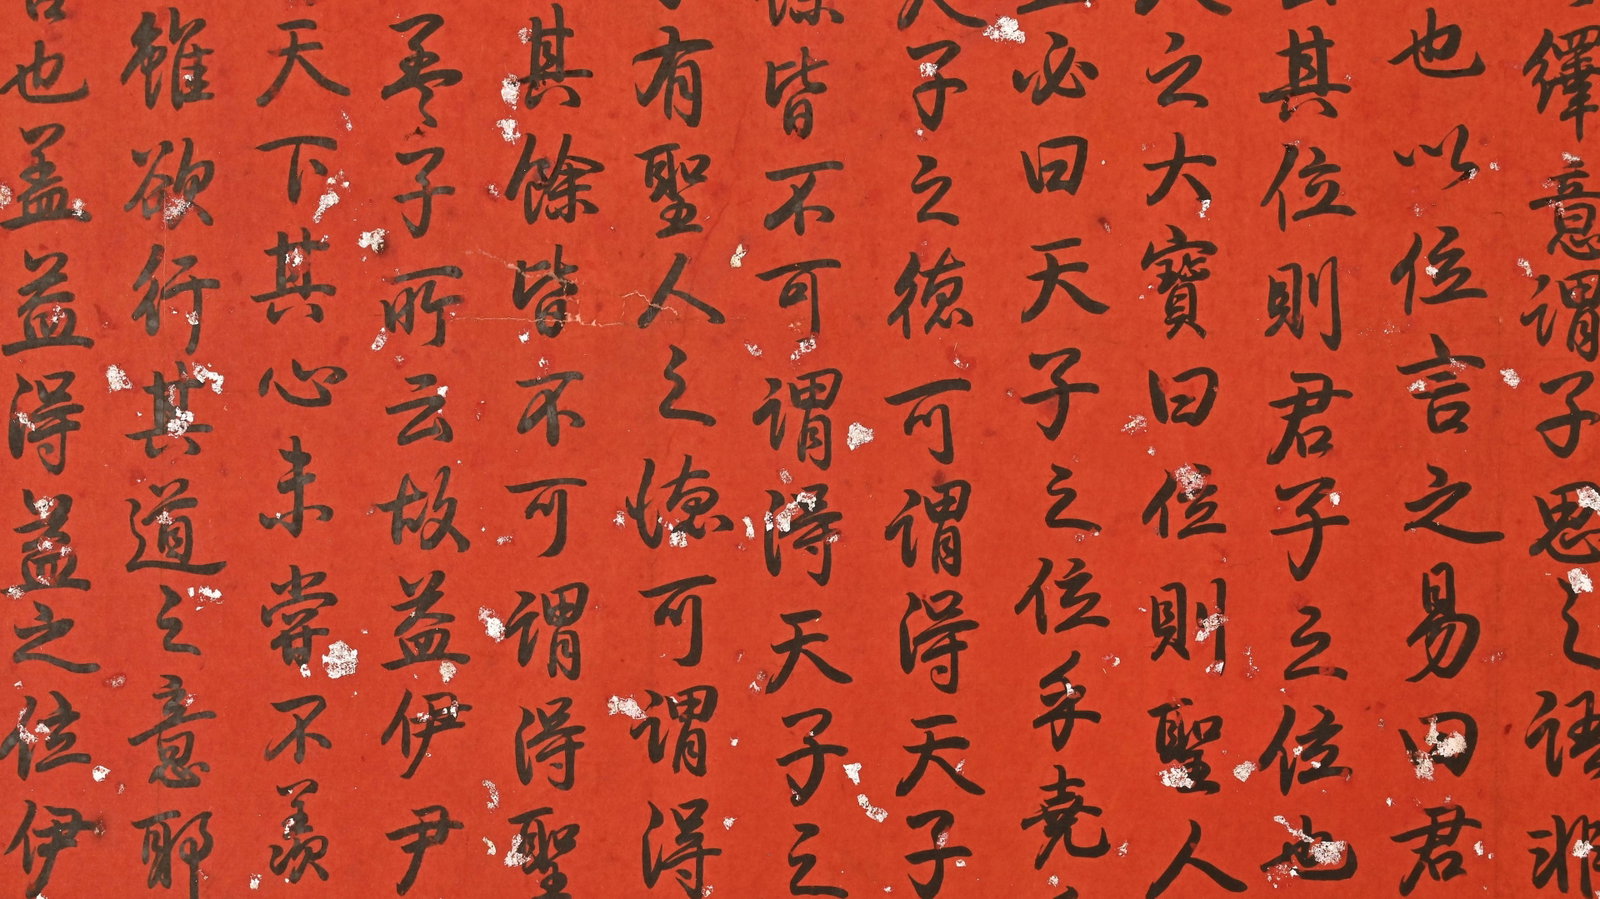 繹意謂子思之語非
也以位言之易曰君
其位則君子之位也
之大寶曰位則聖人
必曰天子之位乎堯
子之德可謂得天子
皆不可謂得天子之
有聖人之德可謂得
其餘皆不可謂得聖
孟子所云故益伊尹
天下其心未嘗不羨
雖欲行其道之意耶
也盖益得益之位伊